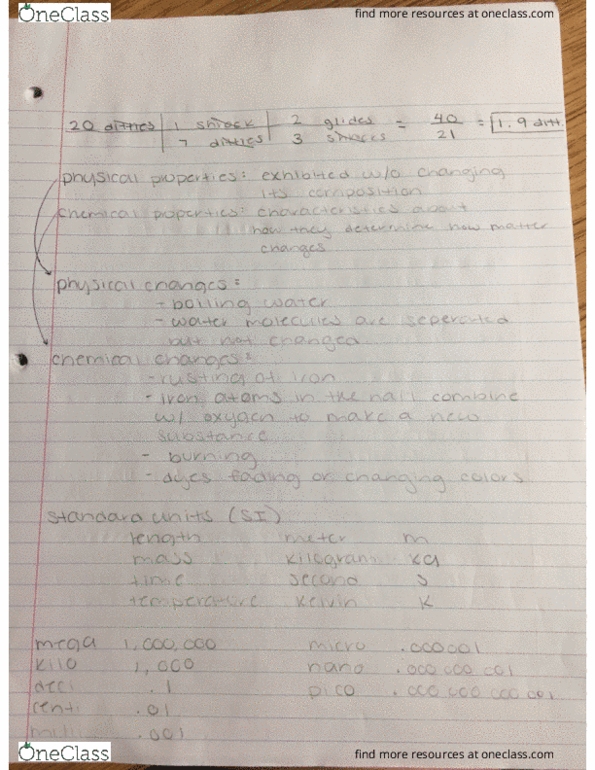 OneClass
find more resources at oneclass.com
20 ditties | 1 shrack | 2 glides = 40 = 1.9 ditt
7 ditties | 3 shracks 21
physical properties: exhibited w/o changing
its composition
chemical properties: characteristics about
how they determine how matter
changes
physical changes:
- boiling water
- water molecules are seperated
but not changed
chemical changes:
- rusting of iron
- iron atoms in the nail combine
w/ oxygen to make a new
substance
- burning
- dyes fading or changing colors
standard units (SI)
length meter m
mass kilogram kg
time second s
temperature kelvin K
mega 1,000,000 micro .000001
kilo 1,000 nano .000 000 001
deci .1 pico .000 000 000 001
centi .01
milli .001
OneClass
find more resources at oneclass.com